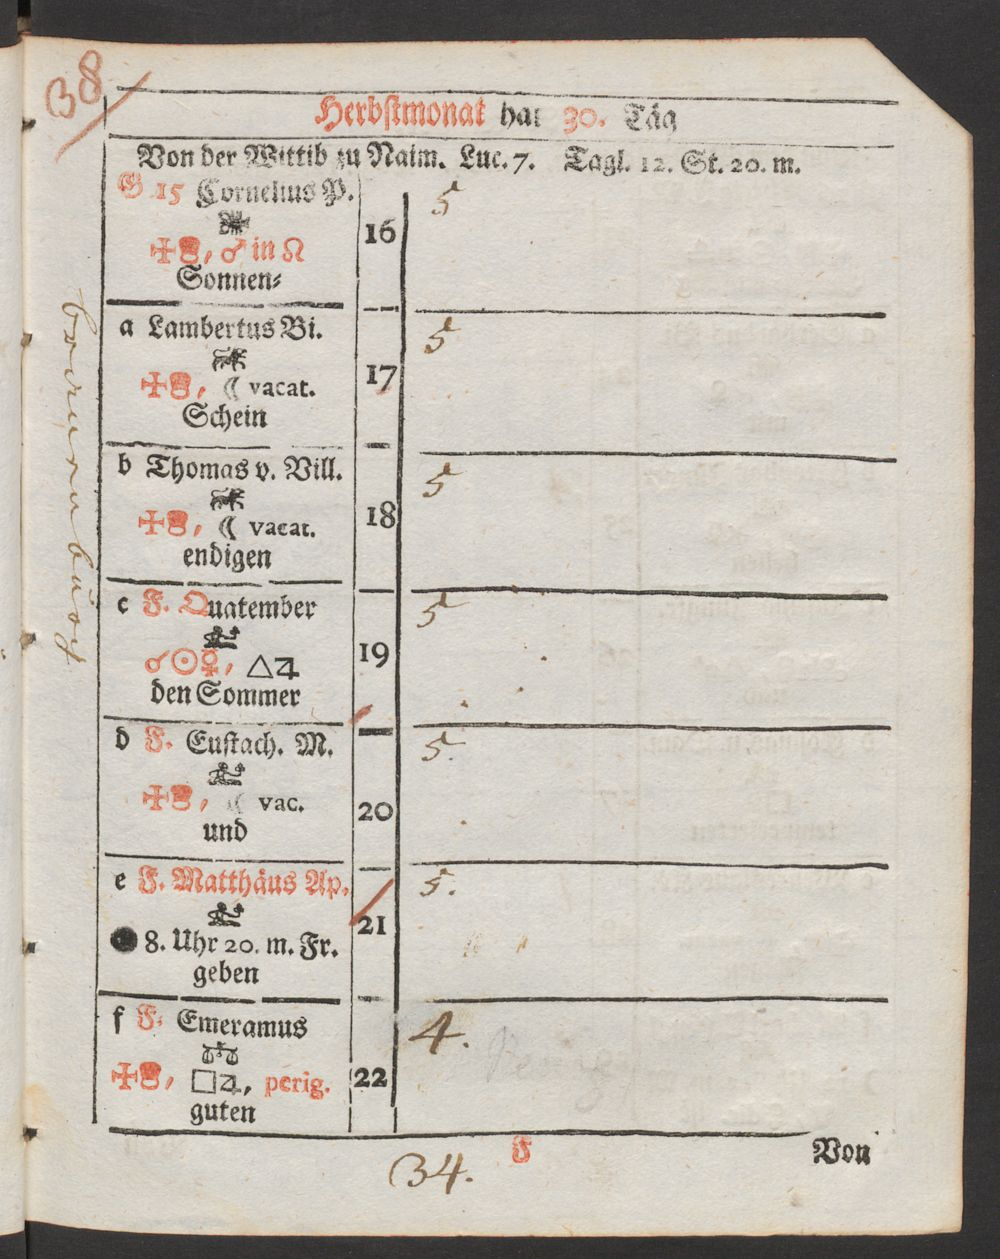 38
Herbstmonat hat 30. Täg
Von der Wittib zu Naim. Luc. 7. Tagl. 12. St. 20. m.
G 15 Cornelius P. 16 5
☩, ♂ in ☊
Sonnen⸗
a Lambertus Bi. 17 5
☩, ☾ vacat.
Schein
b Thomas v. Vill. 18 5
☩, ☾ vacat.
endigen
c F. Quatember 19 5
☌☉☿, △♃
den Sommer
d F. Eustach. M. 20 5.
☩, ☾ vac.
und
e F. Matthäus Ap. 21 5.
● 8. Uhr 20. m. Fr.
geben
f F. Emeramus 22 4.
☩, □♃, perig.
guten
F Von
34.